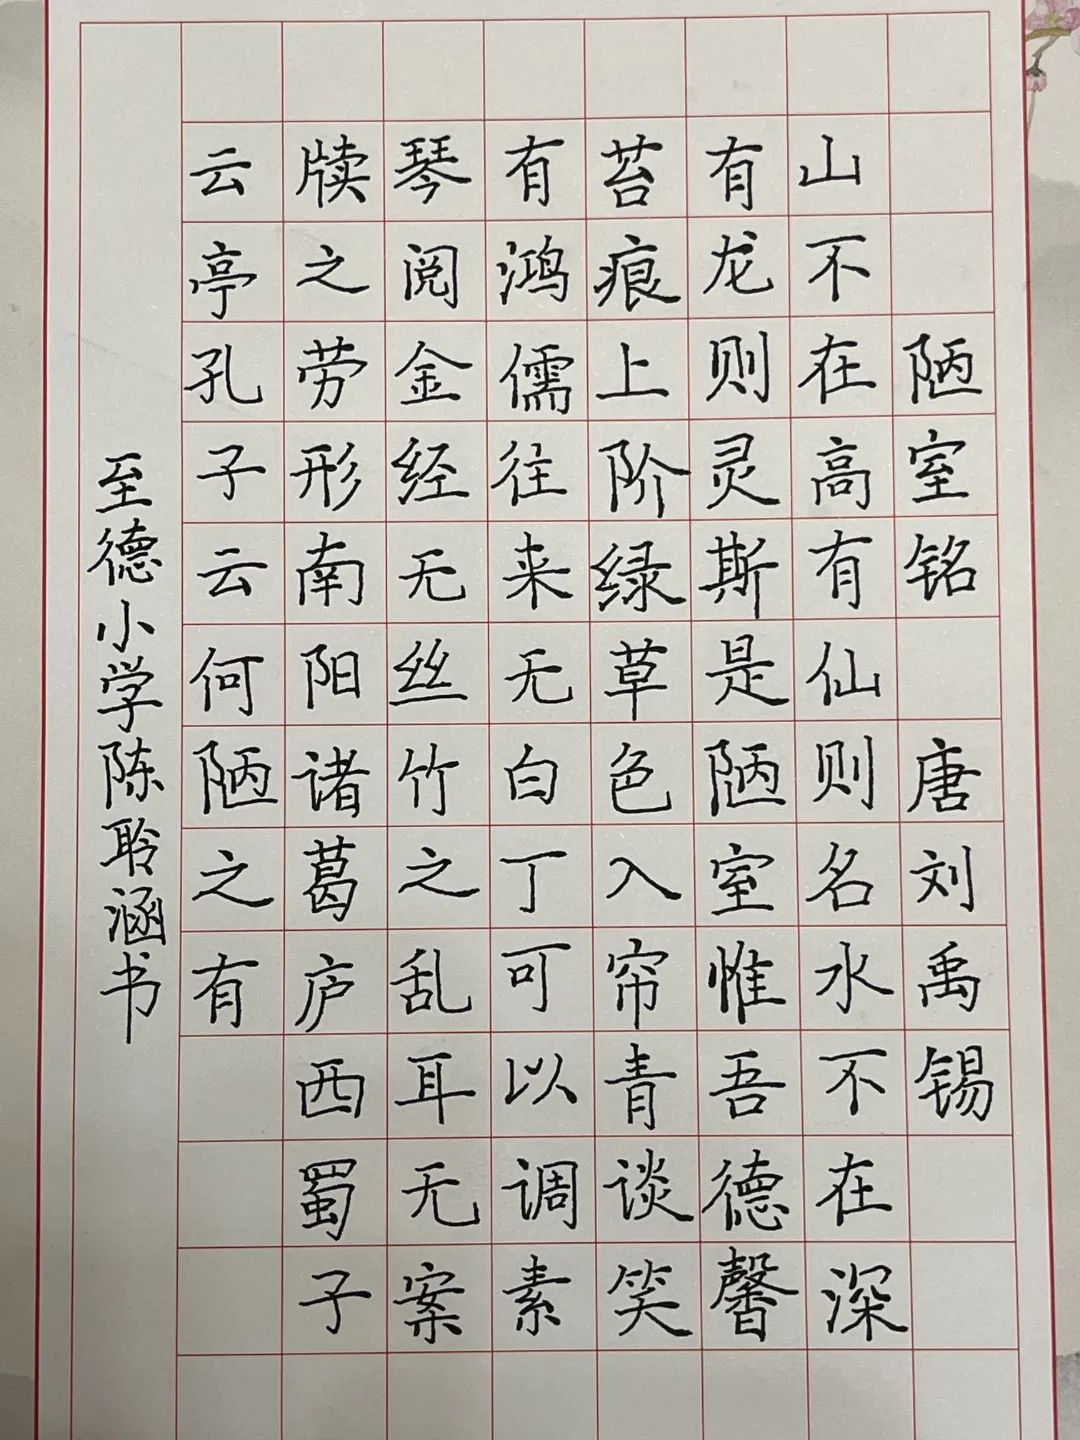 陋室铭 唐刘禹锡
山不在高有仙则名水不在深
有龙则灵斯是陋室惟吾德馨
苔痕上阶绿草色入帘青谈笑
有鸿儒往来无白丁可以调素
琴阅金经无丝竹之乱耳无案
牍之劳形南阳诸葛庐西蜀子
云亭孔子云何陋之有
至德小学陈聆涵书